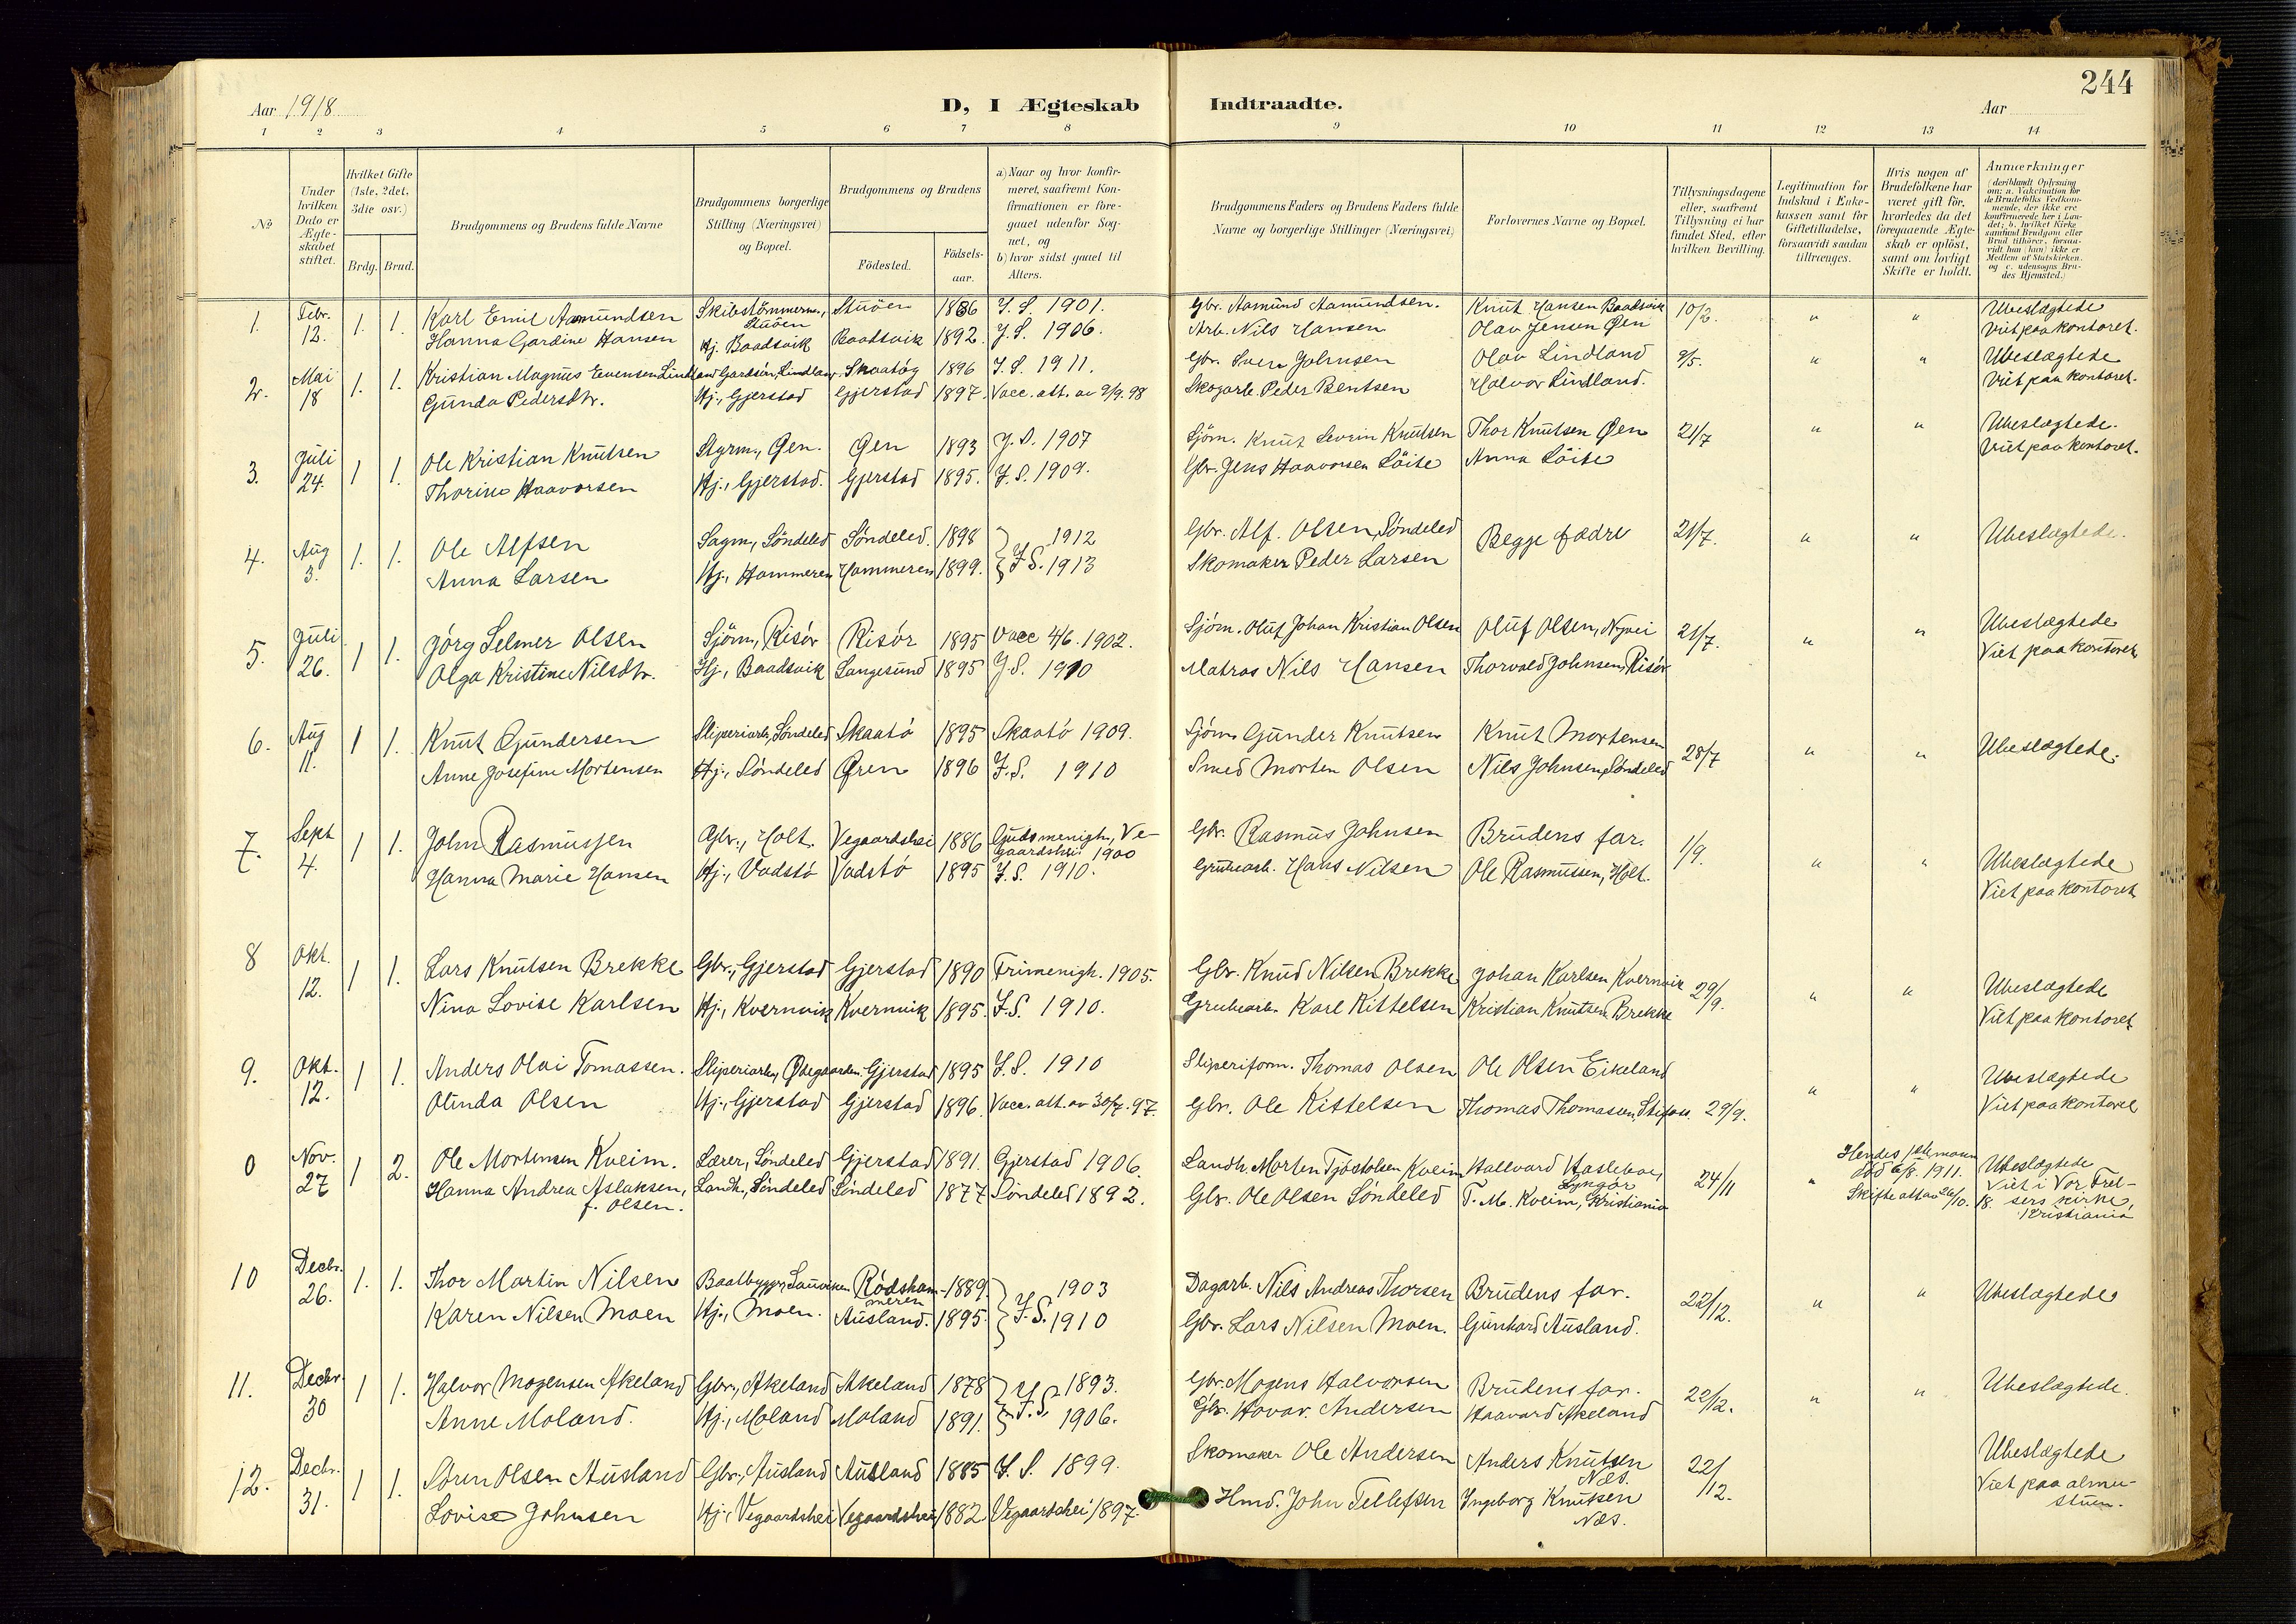 244
Aar 1918
D, I Ægteskab
Indtraadte.
Aar
1 2 3 4 5 6 7 8 9 10 11 12 13 14
No
Under hvilken Dato er Ægteskabet stiftet.
Hvilket Gifte (1ste, 2det, 3die osv.)
Brdg. Brud.
Brudgommens og Brudens fulde Navne
Brudgommens borgerlige Stilling (Næringsvei) og Bopæl.
Brudgommens og Brudens
Fødested. Fødselsaar.
a) Naar og hvor konfirmeret, saafremt Konfirmationen er foregaaet udenfor Sognet, og
b) hvor sidst gaaet til Alters.
Brudgommens Faders og Brudens Faders fulde Navne og borgerlige Stillinger (Næringsvei)
Forlovernes Navne og Bopæl.
Tillysningsdagene eller, saafremt Tillysning ei har fundet Sted, efter hvilken Bevilling.
Legitimation for Indskud i Enkekassen samt for Giftetilladelse, forsaavidt saadan tiltrænges.
Hvis nogen af Brudefolkene har været gift før, hvorledes da det foregaaende Ægteskab er opløst, samt om lovligt Skifte er holdt.
Anmærkninger (deriblandt Oplysning om: a. Vakcination for de Brudefolks Vedkommende, der ikke ere konfirmerede her i Landet; b. hvilket Kirkesamfund Brudgom eller Brud tilhører, forsaavidt han (hun) ikke er Medlem af Statskirken. og c. udensogns Brudes Hjemsted.)
1. Febr. 12. 1. 1. Karl Emil Aamundsen Skibstømmerm., Stuöen Stuöen 1886 I. S. 1901. Gbr. Aamund Aamundsen. Knut Hansen Baadsvik 10/2. " " Ubeslægtede
Hanna Gardine Hansen Hj. Baadsvik Baadsvik 1892. I. S. 1906. Arb. Nils Hansen Olav Jensen Øen Viet paa kontoret.
2. Mai 18 1. 1. Kristian Magnus Evensen Lindland Gardsön, Lindland Skaatöy 1896 I. S. 1911. Gbr. Even Johnsen Olav Lindland 9/5. " " Ubeslægtede
Gunda Pedersdtr. Hj., Gjerstad Gjerstad 1897. Vacc. att. av 9/9. 98 Skogarb. Peder Bentsen Halvor Lindland. Viet paa kontoret.
3. Juli 24. 1 1. Ole Kristian Knutsen Styrm., Øen. Øen 1893 I. S. 1907 Sjöm. Knut Severin Knutsen Thor Knutsen Øen 21/7 " " Ubeslægtede.
Thorine Haavorsen Hj., Gjerstad. Gjerstad 1895. I. S. 1909. Gbr. Jens Haavorsen Löite Anna Löite Viet paa kontoret.
4. Aug 3. 1. 1. Ole Alfsen Sagm., Söndeled Söndeled. 1898 1912 Gbr. Alf. Olsen, Söndeled Begge fædre 21/7. " " Ubeslægtede.
Anna Larsen Hj., Hammeren Hammeren 1899. I. S. 1913 Skomaker Peder Larsen
5. Juli 26. 1 1. Jörg Selmer Olsen Sjöm., Risör Risör 1895 Vacc 4/6. 1902. Sjöm. Oluf Johan Kristian Olsen Oluf Olsen, Nyvei 21/7. " " Ubeslægtede
Olga Kristine Nilsdtr. Hj., Baadsvik Langesund 1895 I. S. 1910 Matros Nils Hansen Thorvald Johnsen, Risör Viet paa kontoret
6. Aug 11. 1 1. Knut Gundersen Sliperiarb., Söndeled Skaatö 1895 Skaatö 1909. Sjöm. Gunder Knutsen Knut Mortensen 28/7 " " Ubeslægtede.
Anne Josefine Mortensen Hj., Söndeled Øren 1896 I. S. 1910 Smed Morten Olsen Nils Johnsen, Söndeled
7. Sept 4. 1 1. John Rasmussen Gbr., Holt. Vegaardshei 1886 Gudsmenigh., Vegaardshei 1900 Gbr. Rasmus Johnsen Brudens far. 1/9. " " Ubeslægtede
Hanna Marie Hansen Hj., Vadstö Vadstö 1895 I. S. 1910. Grubearb. Hans Nilsen Ole Rasmussen, Holt. Viet paa kontoret
8 Okt. 12. 1 1. Lars Knutsen Brekke Gbr., Gjerstad Gjerstad 1890 Frimenigh. 1905. Gbr. Knud Nilsen Brekke Johan Karlsen Kvernvik 29/9. " " Ubeslægtede
Nina Lovise Karlsen Hj., Kvernvik Kvernvik 1895. I. S. 1910. Grubearb. Karl Kittelsen Kristian Knutsen Brekke Viet paa kontoret
9. Okt. 12. 1 1. Anders Olai Tomassen. Sliperiarb., Ødegaarden. Gjerstad 1895 I. S. 1910 Sliperiform. Thomas Olsen Ole Olsen Eikeland " " Ubeslægtede
Olinda Olsen Hj., Gjerstad Gjerstad 1896. Vacc. att. av 30/7. 97. Gbr. Ole Kittelsen Thomas Thomassen, 29/9. Viet paa kontoret
0 Nov. 27 1 2. Ole Mortensen Kveim. Lærer, Söndeled Gjerstad 1891. Gjerstad 1906. Landh. Morten Tjöstolsen Kveim Hallvard Haslebo, Lyngör 24/11 " Hendes 1ste mann död 6/8. 1911. Skifte att av 26/10. 18. Ubeslægtede
Hanna Andrea Aslaksen, f. Olsen. Landh., Söndeled Söndeled 1877 Söndeled 1892. Gbr. Ole Olsen Söndeled T. M. Kveim, Kristiania Viet i Vor Frelsers kirke, Kristiania
10 Decbr. 26. 1. 1. Thor Martin Nilsen Baatbygger, Rödshammeren 1889. 1903 Dagarb. Nils Andreas Thorsen Brudens far. 22/12. " " Ubeslægtede
Karen Nilsen Moen Hj., Moen. Ausland. 1895. I. S. 1910 Gbr. Lars Nilsen Moen. Gunhard Ausland.
11. Decbr. 30 1 1. Halvor Mogensen Akeland Gbr., Akeland Akeland 1878 1893. Gbr. Mogens Halvorsen Brudens far. 22/12. " " Ubeslægtede.
Anne Moland. Hj., Moland Moland 1891. I. S. 1906. Gbr. Havar. Andersen Haavard Akeland
12. Decbr. 31. 1 1. Sören Olsen Ausland Gbr., Ausland Ausland 1885 I. S. 1899. Skomaker Ole Andersen Anders Knutsen Næs. 22/12. Ubeslægtede
Lovise Johnsen Hj., Vegaardshei Vegaardshei 1882. Vegaardshei 1897. Hmd. John Tellefsen Ingeborg Knutsen Næs. Viet paa almustuen.